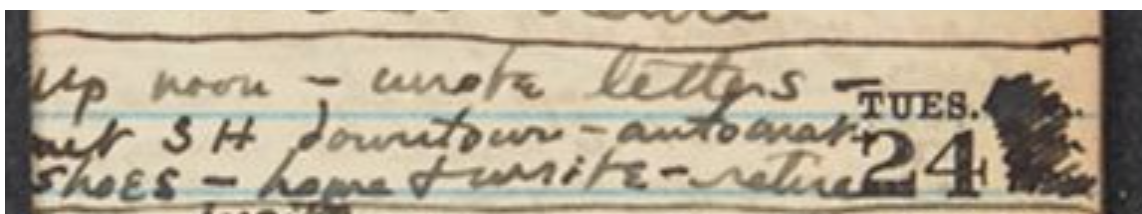 up noon - wrote letters -
TUES.
met SH downtown - automat -
24
shoes - home & write - retire